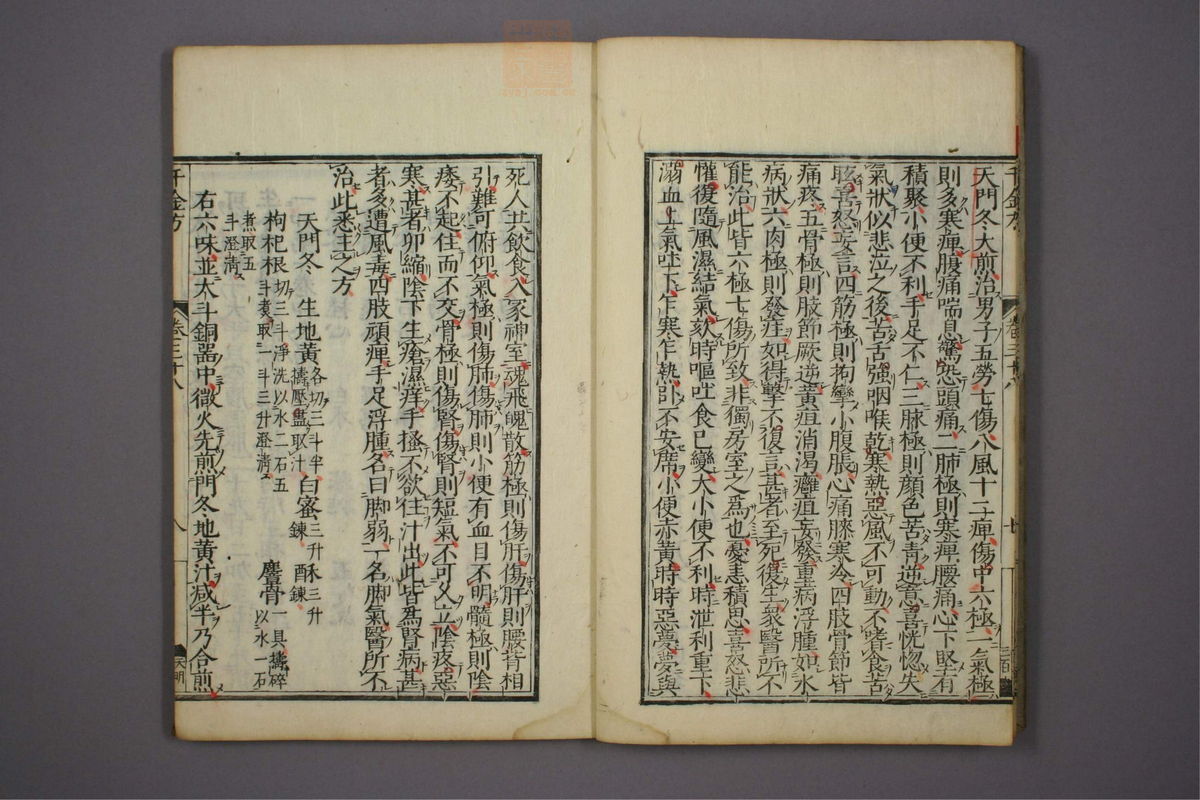 天門冬大煎治男子五勞七傷八風十二痺傷中六極一氣極
則多寒痺腹痛喘息驚恐頭痛二肺極則寒痺腰痛心下堅有
積聚小便不利手足不仁三脉極則顏色苦青逆意喜恍惚失
氣狀似悲泣之後苦舌強咽喉乾寒熱惡風不可動不嗜食苦
眩喜怒妄言四筋極則拘攣小腹脹心痛膝寒冷四肢骨節皆
痛疼五骨極則肢節厥逆黃疸消渴癰疽妄發重病浮腫如水
病狀六肉極則發疰如得擊不復言甚者至死復生衆醫所不
能治此皆六極七傷所致非獨房室之爲也憂恚積思喜怒悲
懽復隨風濕結氣欬時嘔吐食已變大小便不利時泄利重下
溺血上氣吐下乍寒乍熱卧不安席小便赤黃時時惡夢夢與
千金方
卷三十八
死人共飲食入冢神室魂飛魄散筋極則傷肝傷肝則腰背相
引難可俯仰氣極則傷肺傷肺則小便有血目不明髓極則陰
痿不起住而不交骨極則傷腎傷腎則短氣不可久立陰疼惡
寒甚者卵縮陰下生瘡濕痒手搔不欲住汁出此皆爲腎病甚
者多遭風毒四肢頑痺手足浮腫名曰脚弱一名脚氣醫所不
治此悉主之方
天門冬 生地黃各切三斗半擣壓盡取汁 白蜜三升鍊 酥三升鍊
枸杞根切三斗淨洗以水二石五斗煮取一斗三升澄清 麞骨一具擣碎以水一石
煮取五斗澄清
右六味並大斗銅器中微火先煎門冬地黃汁减半乃合煎
千金方
卷三十八
八